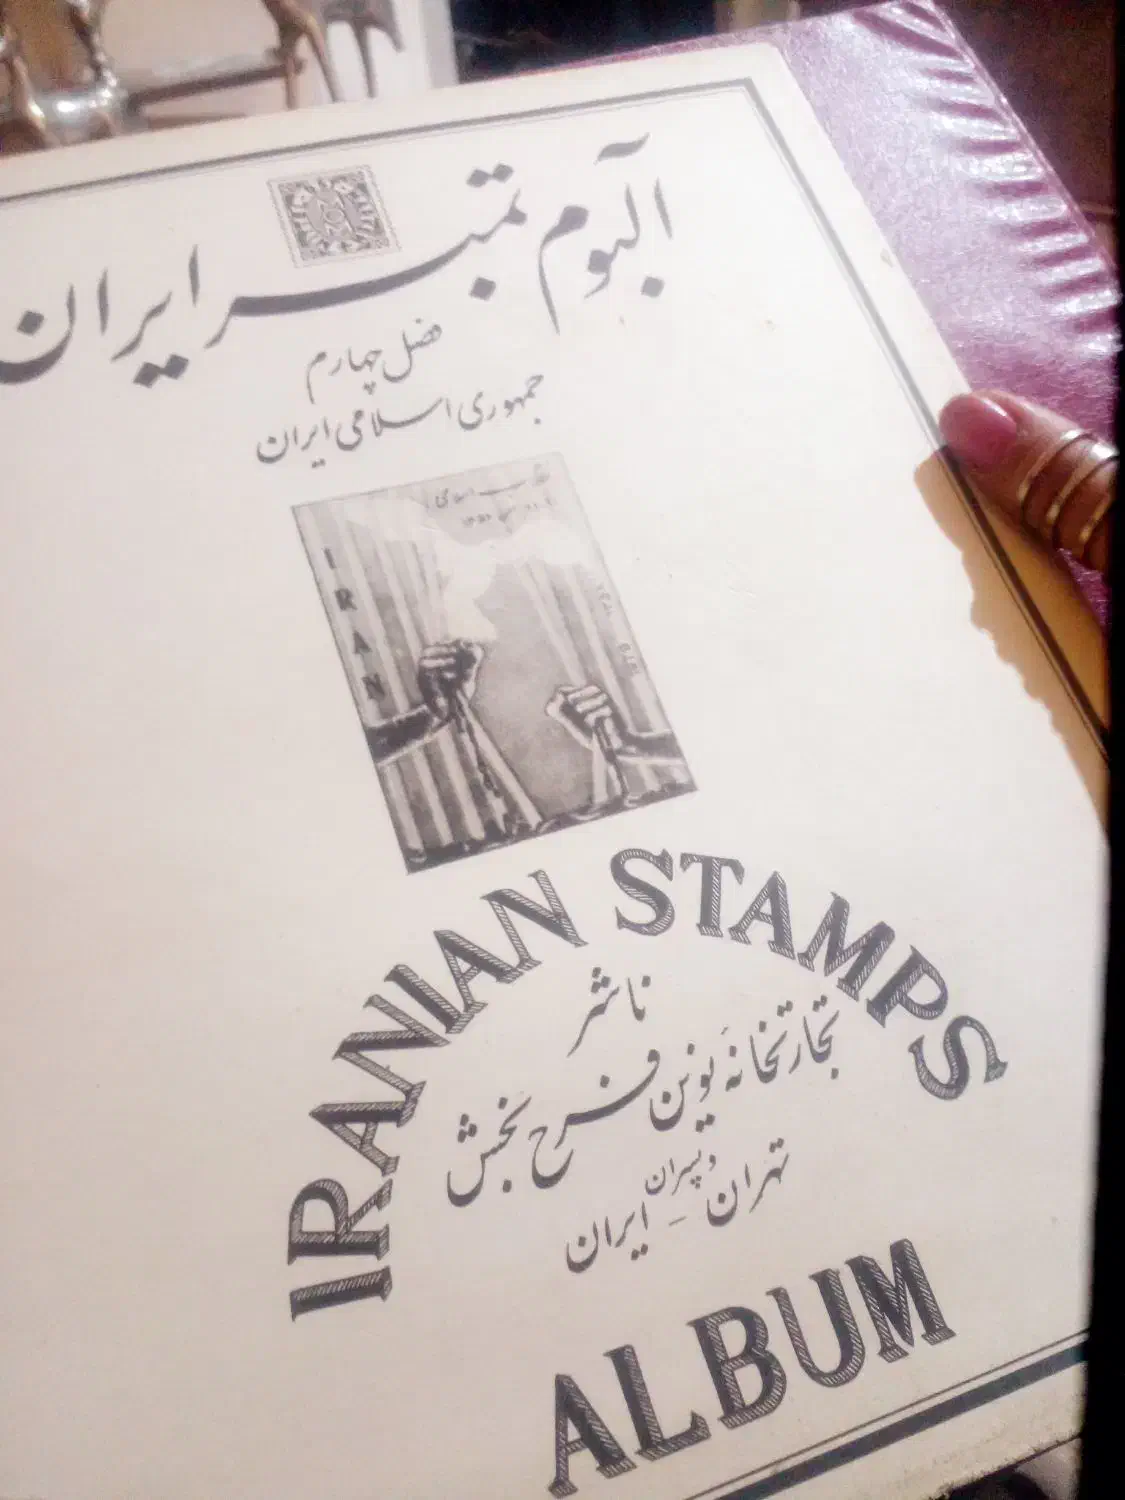 آلبوم تمبر ایران
فصل چهارم
جمهوری اسلامی ایران
IRAN
IRANIAN STAMPS
ناشر
تجارتخانه یونس فرح بخش
و پسران
تهران - ایران
ALBUM